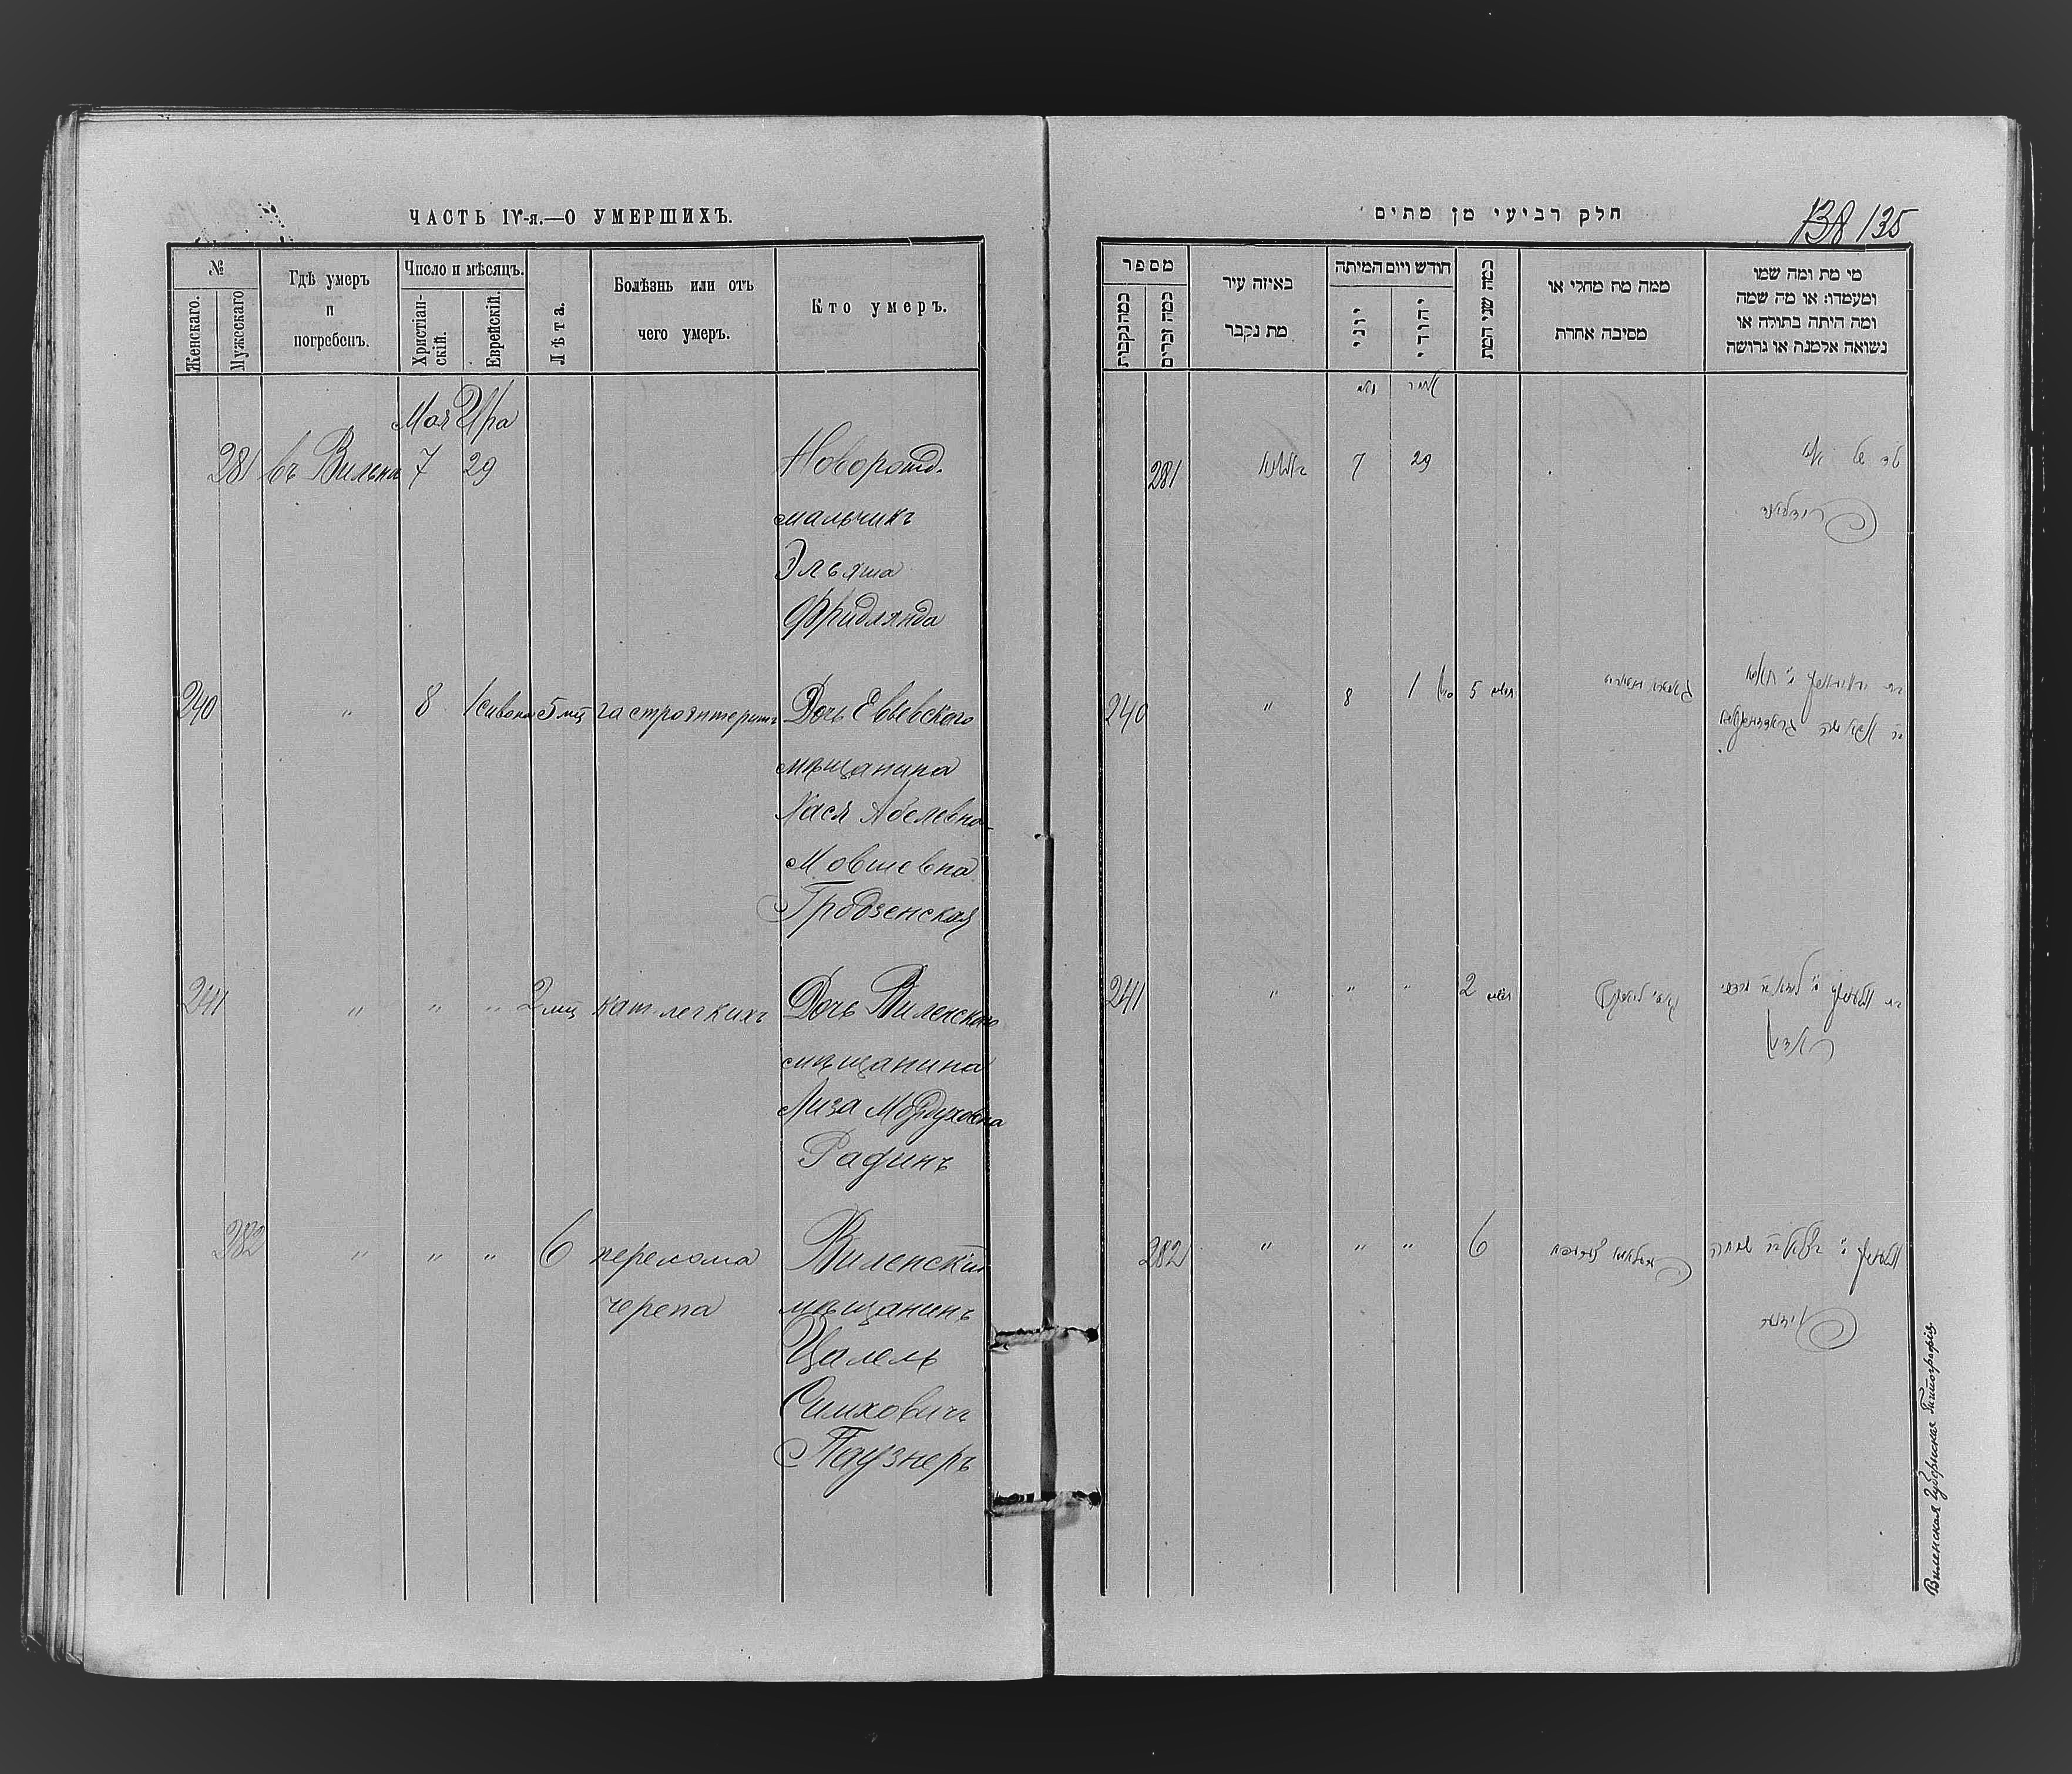 ЧАСТЬ IV-я.—О УМЕРШИХЪ.
№
Женскаго.
Мужескаго
Гдѣ умеръ
и
погребенъ.
Число и мѣсяцъ.
Христіан-
скій.
Еврейскій.
Лѣта.
Болѣзнь или отъ
чего умеръ.
Кто умеръ.
Мая Ира
281 въ Вильна 7 29 Новорожд.
мальчикъ
Эльяша
Фридлянда
240 " 8 1 сивона 5 мц гастроэнтеритъ Дочь Евьевского
мѣщанина
Хася Абелевна-
Мовшевна
Гродзенская
241 " " " 2 мц кат. легкихъ Дочь Виленского
мѣщанина
Лиза Мордуховна
Радинъ
282 " " " 6 перелома Виленскій
черепа мѣщанинъ
Цалель
Симховичъ
Паузнеръ
חלק רביעי מן מתים
138 135
מספר
כמה נקבות
כמה זכרים
באיזה עיר
מת נקבר
חודש ויום המיתה
יוני
יהודי
כמה שני המת
ממה מת מחלי או
מסיבה אחרת
מי מת ומה שמו
ומעמדו: או מה שמה
ומה היתה בתולה או
נשואה אלמנה או גרושה
מאי אייר
281 ווילנא 7 29
240 " 8 1 סיון 5
241 " " " 2
282 " " " 6
Виленская Губернская Типографія